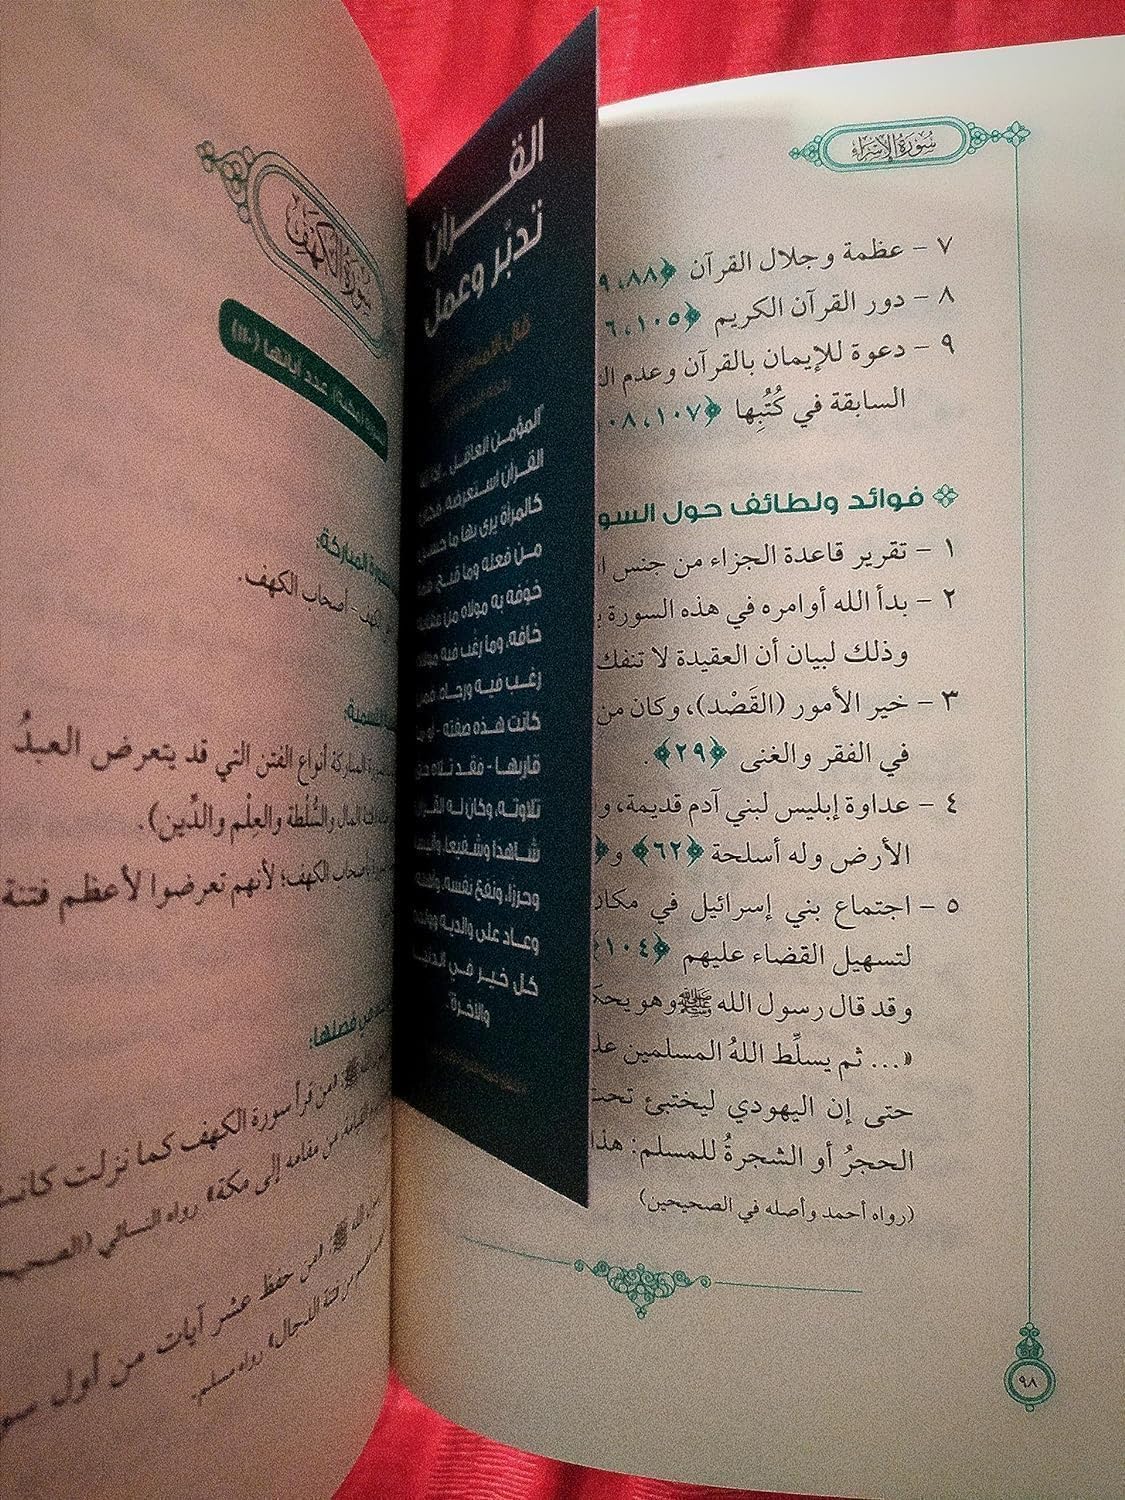 سُورَةُ الإِسْرَاء
٧ - عظمة وجلال القرآن ﴿٨٨،
٨ - دور القرآن الكريم ﴿١٠٥،
٩ - دعوة للإيمان بالقرآن وعدم
السابقة في كُتُبِها ﴿١٠٧،
فوائد ولطائف حول
١ - تقرير قاعدة الجزاء من جنس
٢ - بدأ الله أوامره في هذه السورة
وذلك لبيان أن العقيدة لا تنفك
٣ - خير الأمور (القَصْد)، وكان من
في الفقر والغنى ﴿٢٩﴾.
٤ - عداوة إبليس لبني آدم قديمة،
الأرض وله أسلحة ﴿٦٢﴾ و
٥ - اجتماع بني إسرائيل في مكان
لتسهيل القضاء عليهم ﴿١٠٤﴾
وقد قال رسول الله ﷺ وهو
«... ثم يسلِّط اللهُ المسلمين
حتى إن اليهودي ليختبئ تحت
الحجرُ أو الشجرةُ للمسلم: هذا
(رواه أحمد وأصله في الصحيحين)
٩٨
القرآن
تدبّر وعمل
"المؤمن العاقل
القرآن استعرضه
كالمرآة يرى بها ما حسن
من فعله وما قبح
خوفه به مولاه من عقابه
خافه، وما رغب فيه مولاه
رغب فيه ورجاه، فمن
كانت هذه صفته - أو ما
قاربها - فقد تلاه حق
تلاوته، وكان له القرآن
شاهدا وشفيعا، وأنيسا
وحرزا، ونفع نفسه، وأهله
وعاد على والديه وولده
كل خير في الدنيا
والآخرة".
سُورَةُ الكَهْفِ
عدد آياتها (١١٠)
المباركة:
الكهف - أصحاب الكهف.
التسمية:
المباركة أنواع الفتن التي قد يتعرض العبدُ
المال والسُّلْطة والعِلْم والدِّين).
أصحاب الكهف؛ لأنهم تعرضوا لأعظم فتنة
فضلها:
ﷺ: «من قرأ سورة الكهف كما نزلت كانت
من مقامه إلى مكة» رواه النسائي
ﷺ: «من حفظ عشر آيات من أول
من فتنة الدجال» رواه مسلم.